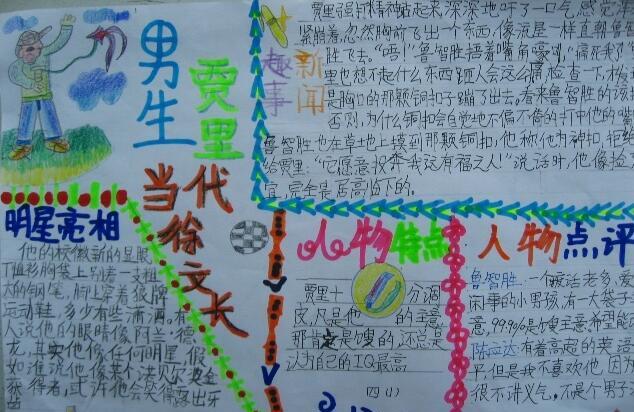 男生
贾里
当代
徐文长
趣事
新闻
贾里强打精神站起来,深深地吁了一口气,感觉
紧绷着,忽然胸前飞出一个东西,像流星一样直朝鲁智
胜飞去。“唔!”鲁智胜捂着嘴角嚷到,“痛死我了
里也想不起什么东西跟人会这么痛,检查一下,
是胸口的那颗铜扣子蹦了出去。看来鲁智胜的
否则,为什么铜扣会自觉地不偏不倚的打中他的嘴
鲁智胜也在草地上摸到那颗铜扣,他称他为神扣,拒绝
给贾里:“它愿意投奔我这有福之人!”说话时,他像捡
宜,完全是居高临下的。
明星亮相
他的校徽新的显眼
T恤衫胸袋上别着一支粗
大的钢笔,脚上穿着狼牌
运动鞋,多少有些潇洒,有
人说他的眼睛像阿兰·德
龙,其实他像任何明星,假
如谁说他像某个诺贝尔奖金
获得者,或许他会笑得露出牙
人物特点
贾里十分调
皮,凡是他的主意
那肯定是馊的,还总是
认为自己的IQ最高
四(1)
人物点评
鲁智胜:一个废话老多,爱
闲事的小男孩,有一大袋子
意,99.9%是馊主意希望能
陈应达:有着高超的英语
平,但是我不喜欢他,因为
很不讲义气,不是个男子